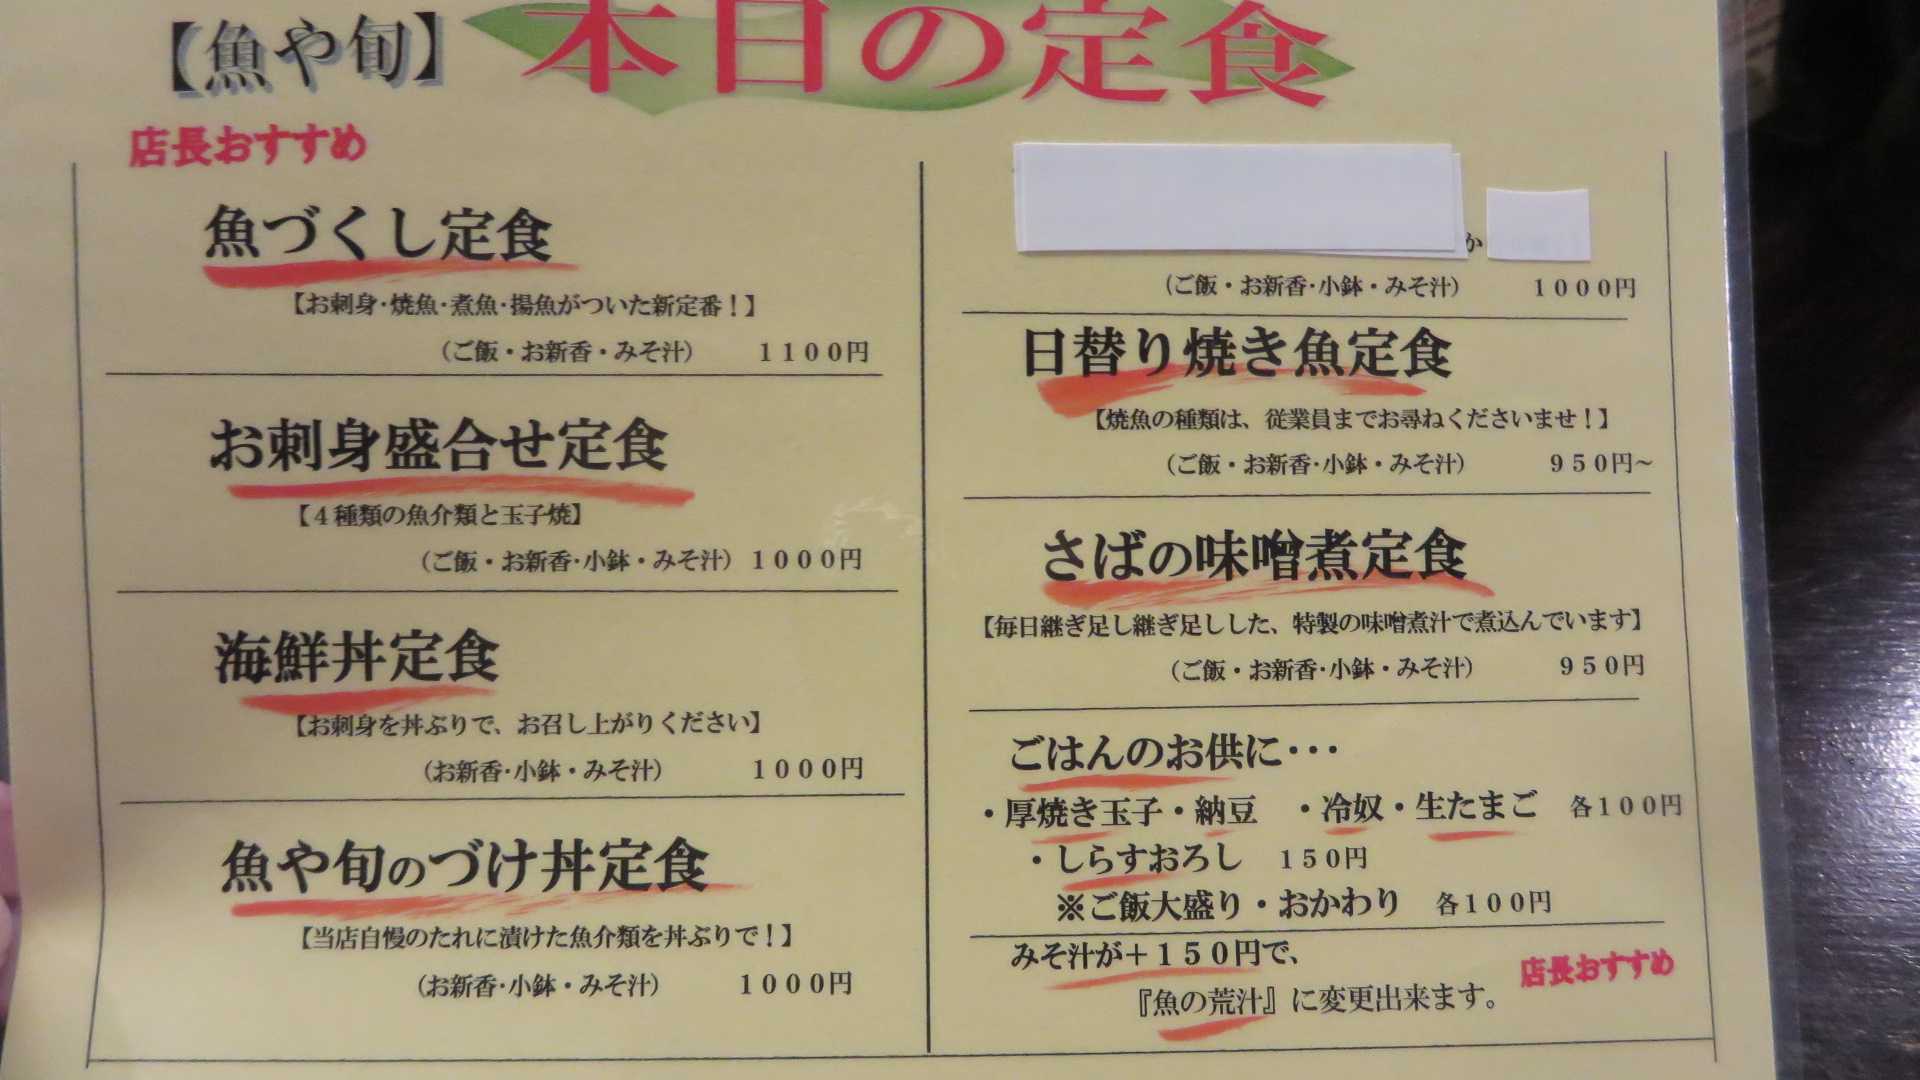 【魚や旬】 本日の定食
店長おすすめ
魚づくし定食
【お刺身・焼魚・煮魚・揚魚がついた新定番！】
（ご飯・お新香・みそ汁） １１００円
お刺身盛合せ定食
【４種類の魚介類と玉子焼】
（ご飯・お新香・小鉢・みそ汁） １０００円
海鮮丼定食
【お刺身を丼ぶりで、お召し上がりください】
（お新香・小鉢・みそ汁） １０００円
魚や旬のづけ丼定食
【当店自慢のたれに漬けた魚介類を丼ぶりで！】
（お新香・小鉢・みそ汁） １０００円
か
（ご飯・お新香・小鉢・みそ汁） １０００円
日替り焼き魚定食
【焼魚の種類は、従業員までお尋ねくださいませ！】
（ご飯・お新香・小鉢・みそ汁） ９５０円～
さばの味噌煮定食
【毎日継ぎ足し継ぎ足しした、特製の味噌煮汁で煮込んでいます】
（ご飯・お新香・小鉢・みそ汁） ９５０円
ごはんのお供に・・・
・厚焼き玉子・納豆 ・冷奴・生たまご 各１００円
・しらすおろし １５０円
※ご飯大盛り・おかわり 各１００円
みそ汁が＋１５０円で、
『魚の荒汁』に変更出来ます。
店長おすすめ